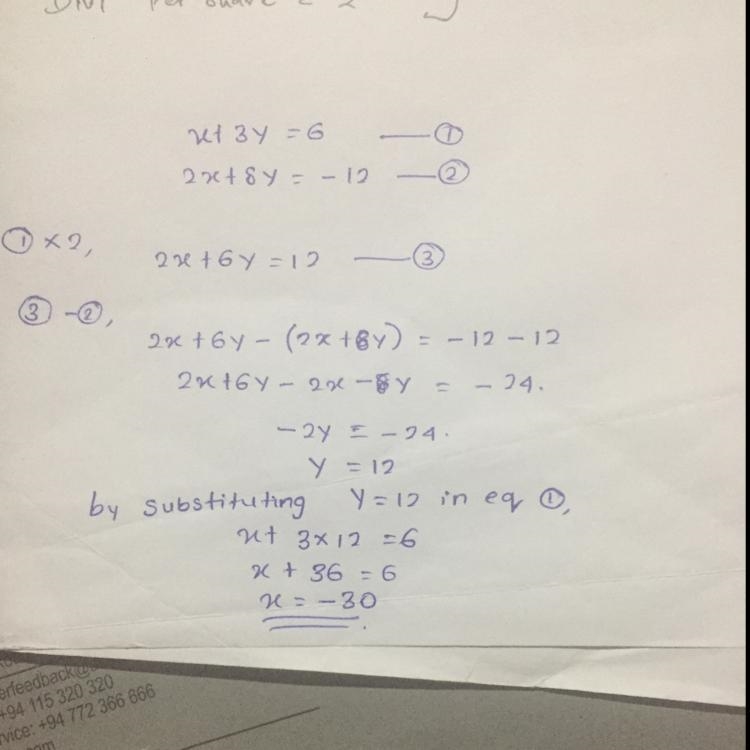 x + 3y = 6 —— ①
2x + 8y = -12 —— ②
① × 2,
2x + 6y = 12 —— ③
③ - ②,
2x + 6y - (2x + 8y) = -12 - 12
2x + 6y - 2x - 8y = -24.
-2y = -24.
y = 12
by substituting y = 12 in eq ①,
x + 3 × 12 = 6
x + 36 = 6
x = -30.
erfeedback@
+94 115 320 320
rvice: +94 772 366 666
com